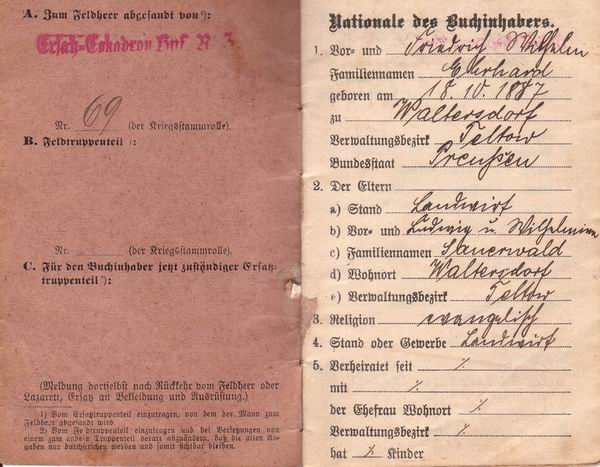 A. Zum Feldheer abgesandt von ¹):
Ersatz-Eskadron Hus N 3
Nr. 69 (der Kriegsstammrolle).
B. Feldtruppenteil ²):
Nr. (der Kriegsstammrolle).
C. Für den Buchinhaber jetzt zuständiger Ersatz-
truppenteil ²):
(Meldung dortselbst nach Rückkehr vom Feldheer oder
Lazarett, Ersatz an Bekleidung und Ausrüstung.)
1) Vom Ersatztruppenteil einzutragen, von dem der Mann zum
Feldheer abgesandt wird.
2) Vom Feldtruppenteil einzutragen und bei Versetzungen von
einem zum andern Truppenteil derart abzuändern, daß die alten An-
gaben nur durchstrichen werden und somit sichtbar bleiben.
Nationale des Buchinhabers.
1. Vor- und Friedrich Wilhelm
Familiennamen Ehrhard
geboren am 18. 10. 1887
zu Waltersdorf
Verwaltungsbezirk Teltow
Bundesstaat Preußen
2. Der Eltern
a) Stand Landwirt
b) Vor- und Ludwig u. Wilhelmine
c) Familiennamen Sauerwald
d) Wohnort Waltersdorf
e) Verwaltungsbezirk Teltow
3. Religion evangelisch
4. Stand oder Gewerbe Landwirt
5. Verheiratet seit ⁒
mit ⁒
der Ehefrau Wohnort ⁒
Verwaltungsbezirk ⁒
hat ⁒ Kinder